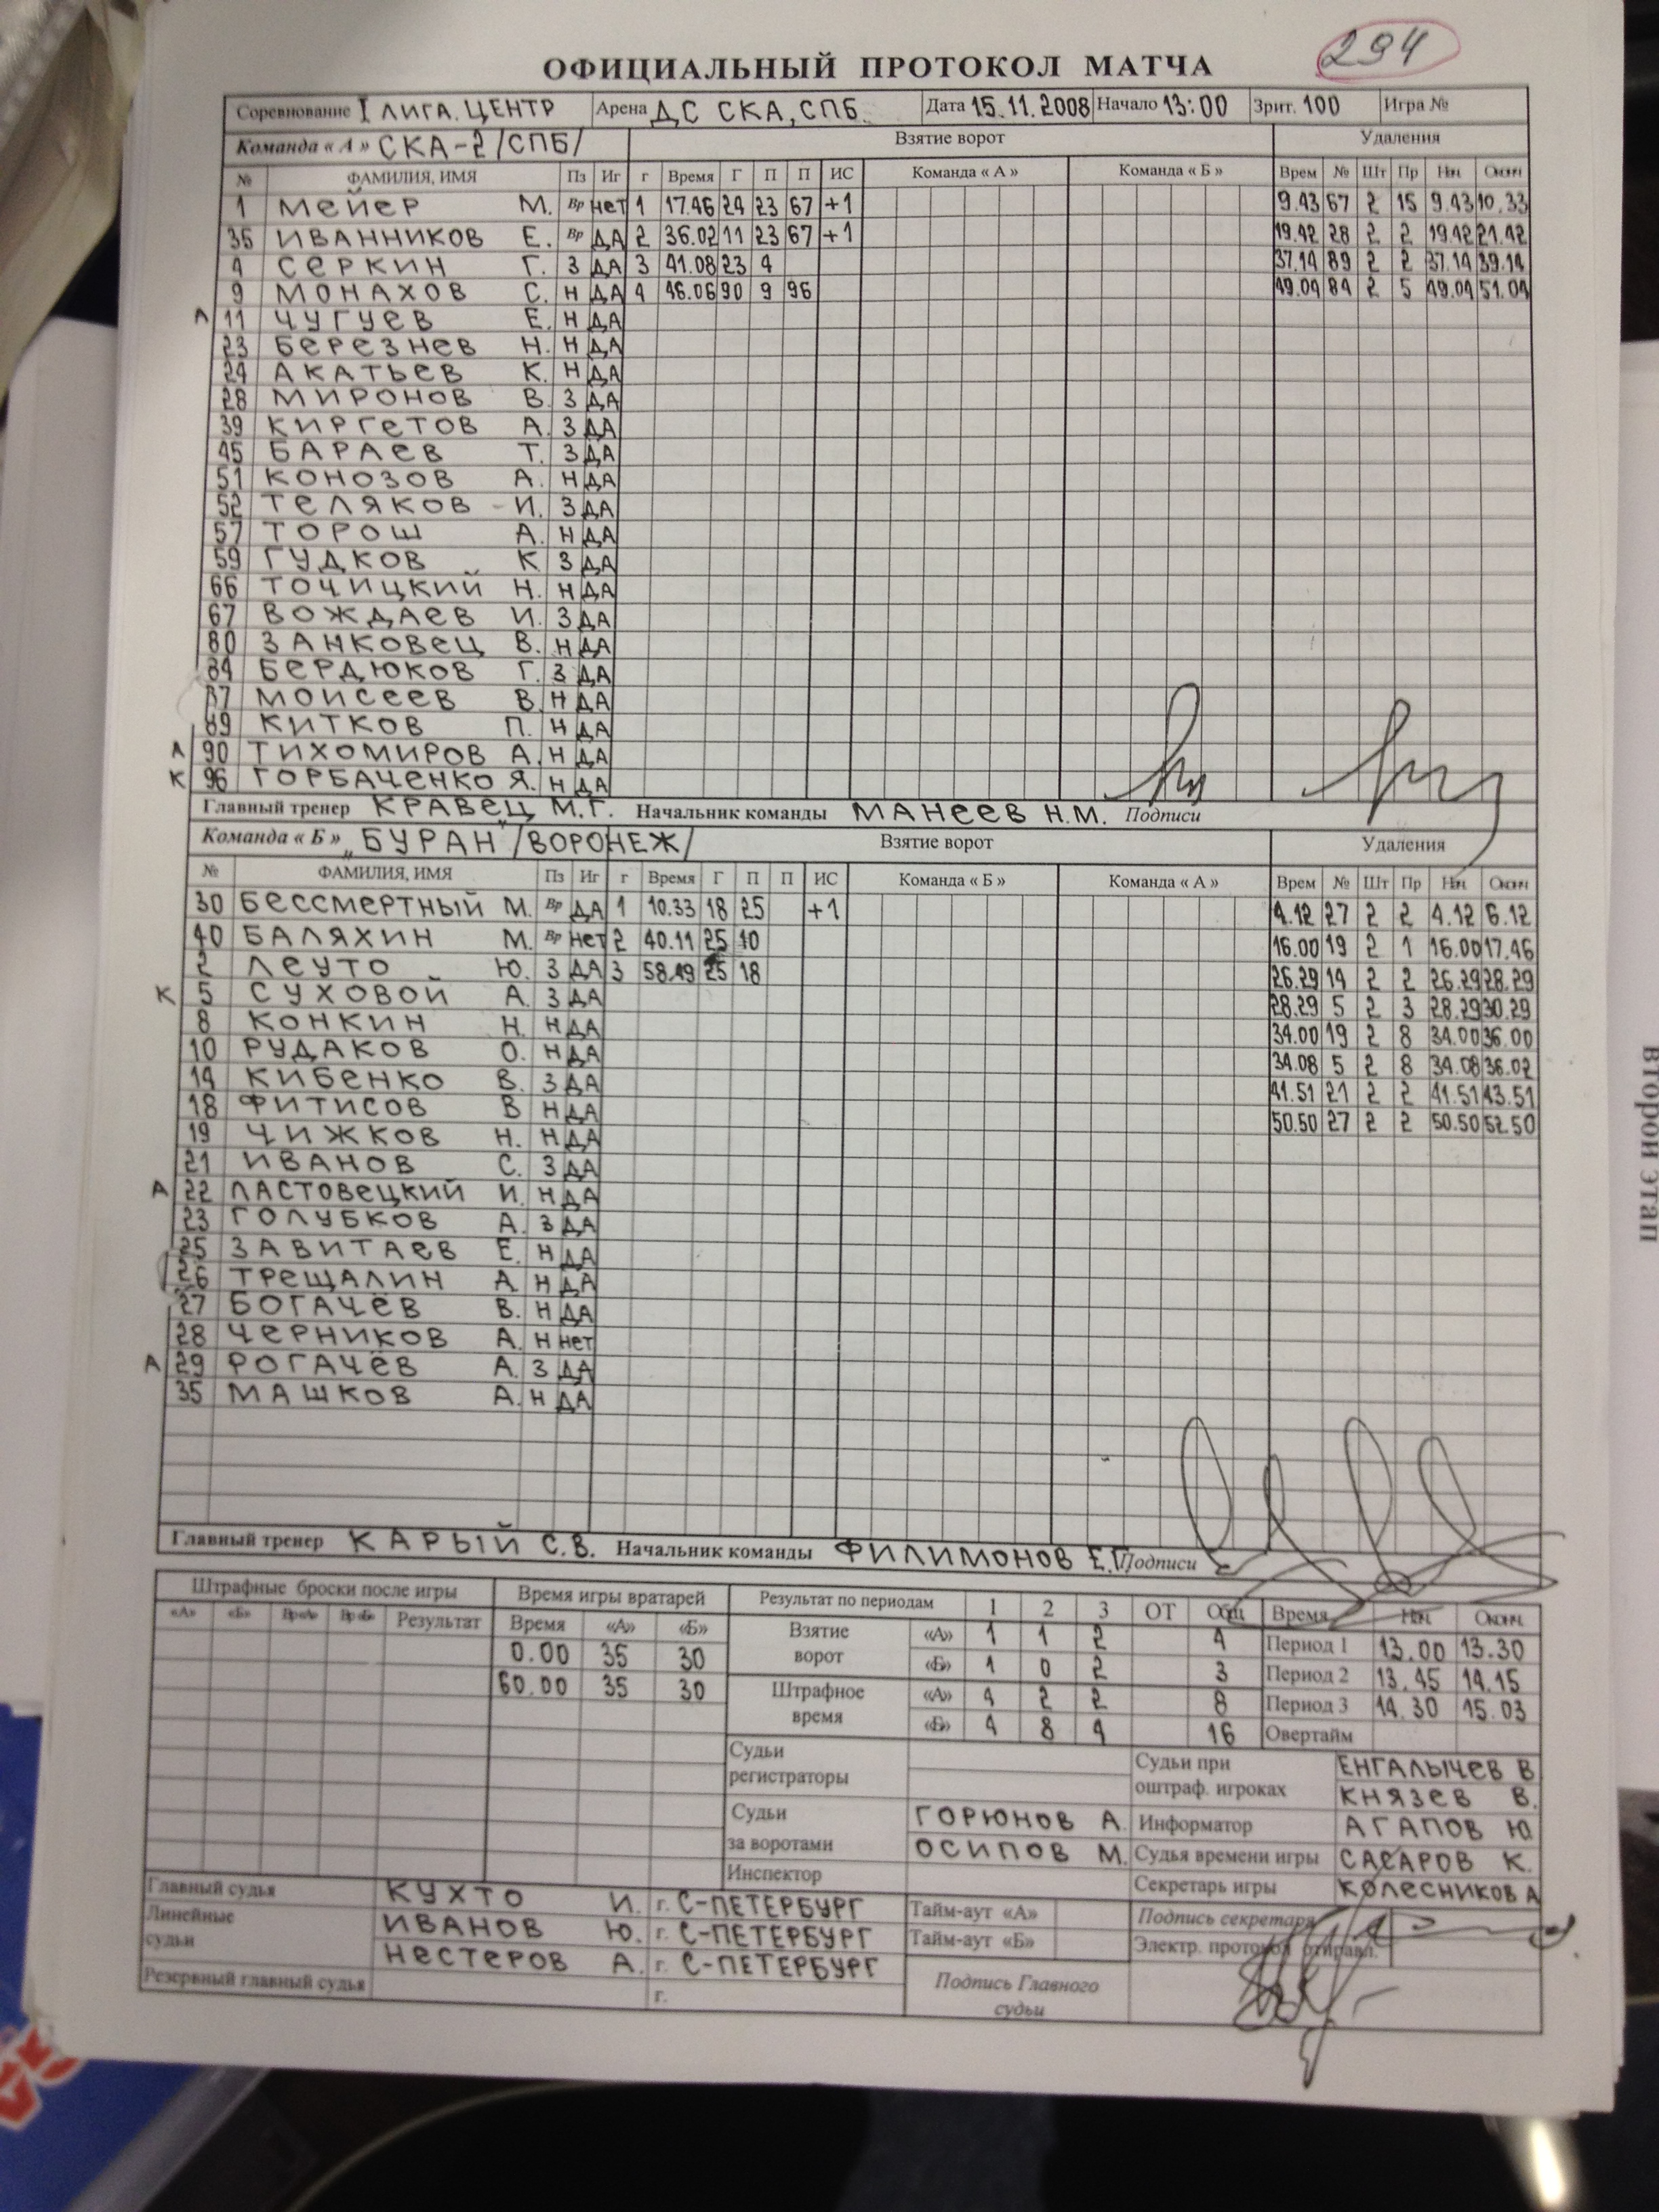 294
ОФИЦИАЛЬНЫЙ ПРОТОКОЛ МАТЧА
Соревнование I ЛИГА. ЦЕНТР Арена ДС СКА, СПБ. Дата 15.11.2008 Начало 13:00 Зрит. 100 Игра №
Команда « А » СКА-2 /СПБ/ Взятие ворот Удаления
№ ФАМИЛИЯ, ИМЯ Пз Иг г Время Г П П ИС Команда « А » Команда « Б » Врем № Шт Пр Нач. Оконч.
1 МЕЙЕР М. Вр НЕТ 1 17.46 24 23 67 +1 9.43 67 2 15 9.43 10.33
35 ИВАННИКОВ Е. Вр ДА 2 36.02 11 23 67 +1 19.42 28 2 2 19.42 21.42
4 СЕРКИН Г. З ДА 3 41.08 23 4 37.14 89 2 2 37.14 39.14
9 МОНАХОВ С. Н ДА 4 46.06 90 9 96 49.04 84 2 5 49.04 51.04
А 11 ЧУГУЕВ Е. Н ДА
23 БЕРЕЗНЕВ Н. Н ДА
24 АКАТЬЕВ К. Н ДА
28 МИРОНОВ В. З ДА
39 КИРГЕТОВ А. З ДА
45 БАРАЕВ Т. З ДА
51 КОНОЗОВ А. Н ДА
52 ТЕЛЯКОВ И. З ДА
57 ТОРОШ А. Н ДА
59 ГУДКОВ К З ДА
66 ТОЧИЦКИЙ Н. Н ДА
67 ВОЖДАЕВ И. З ДА
80 ЗАНКОВЕЦ В. Н ДА
84 БЕРДЮКОВ Г. З ДА
87 МОИСЕЕВ В. Н ДА
89 КИТКОВ П. Н ДА
А 90 ТИХОМИРОВ А. Н ДА
К 96 ГОРБАЧЕНКО Я. Н ДА
Главный тренер КРАВЕЦ М.Г. Начальник команды МАНЕЕВ Н.М. Подписи
Команда « Б » „БУРАН" /ВОРОНЕЖ/ Взятие ворот Удаления
№ ФАМИЛИЯ, ИМЯ Пз Иг г Время Г П П ИС Команда « Б » Команда « А » Врем № Шт Пр Нач. Оконч.
30 БЕССМЕРТНЫЙ М. Вр ДА 1 10.33 18 25 +1 4.12 27 2 2 4.12 6.12
40 БАЛЯХИН М. Вр НЕТ 2 40.11 25 10 16.00 19 2 1 16.00 17.46
2 ЛЕУТО Ю. З ДА 3 58.49 25 18 26.29 14 2 2 26.29 28.29
К 5 СУХОВОЙ А. З ДА 28.29 5 2 3 28.29 30.29
8 КОНКИН Н. Н ДА 34.00 19 2 8 34.00 36.00
10 РУДАКОВ О. Н ДА 34.08 5 2 8 34.08 36.02
14 КИБЕНКО В. З ДА 41.51 21 2 2 41.51 43.51
18 ФИТИСОВ В Н ДА 50.50 27 2 2 50.50 52.50
19 ЧИЖКОВ Н. Н ДА
21 ИВАНОВ С. З ДА
А 22 ЛАСТОВЕЦКИЙ И. Н ДА
23 ГОЛУБКОВ А. З ДА
25 ЗАВИТАЕВ Е. Н ДА
26 ТРЕЩАЛИН А. Н ДА
27 БОГАЧЁВ В. Н ДА
28 ЧЕРНИКОВ А. Н НЕТ
А 29 РОГАЧЁВ А. З ДА
35 МАШКОВ А. Н ДА
Главный тренер КАРЫЙ С.В. Начальник команды ФИЛИМОНОВ Е.Г. Подписи
Штрафные броски после игры Время игры вратарей Результат по периодам 1 2 3 ОТ Общ Время Нач. Оконч.
«А» «Б» Вр «А» Вр «Б» Результат Время «А» «Б»
Взятие ворот «А» 1 1 2 4 Период 1 13.00 13.30
0.00 35 30 «Б» 1 0 2 3 Период 2 13.45 14.15
60.00 35 30 Штрафное время «А» 4 2 2 8 Период 3 14.30 15.03
«Б» 4 8 4 16 Овертайм
Судьи регистраторы Судьи при оштраф. игроках ЕНГАЛЫЧЕВ В
КНЯЗЕВ В.
Судьи за воротами ГОРЮНОВ А. Информатор АГАПОВ Ю
ОСИПОВ М. Судья времени игры САСАРОВ К.
Инспектор Секретарь игры КОЛЕСНИКОВ А
Главный судья КУХТО И. г. С-ПЕТЕРБУРГ Тайм-аут «А» Подпись секретаря
Линейные судьи ИВАНОВ Ю. г. С-ПЕТЕРБУРГ Тайм-аут «Б» Электр. протокол отправл.
НЕСТЕРОВ А. г. С-ПЕТЕРБУРГ Подпись Главного судьи
Резервный главный судья г.
второй этап